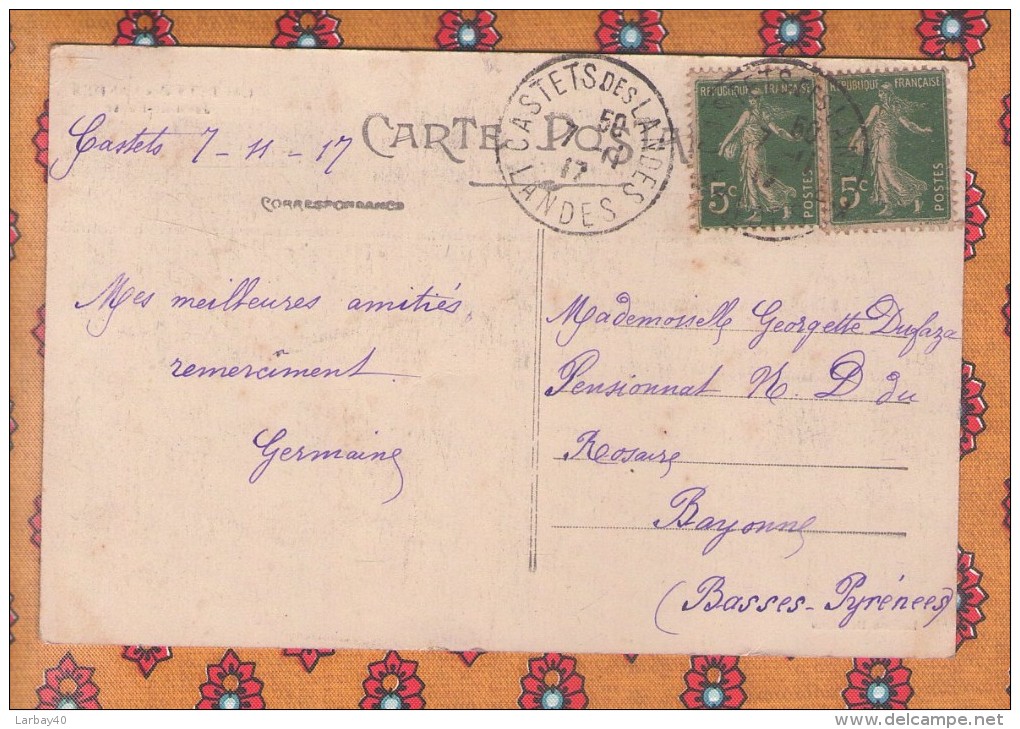 CARTE POSTA
Castets 7-11-17
CORRESPONDANCE
CASTETS DES LANDES
LANDES
7 - 11
17
REPUBLIQUE FRANÇAISE
5c
POSTES
REPUBLIQUE FRANÇAISE
5c
POSTES
Mes meilleures amitiés,
remerciment.
Germaine
Mademoiselle Georgette Dufaza
Pensionnat N. D du
Rosaire
Bayonne
(Basses-Pyrénées)
Larbay40
www.delcampe.net